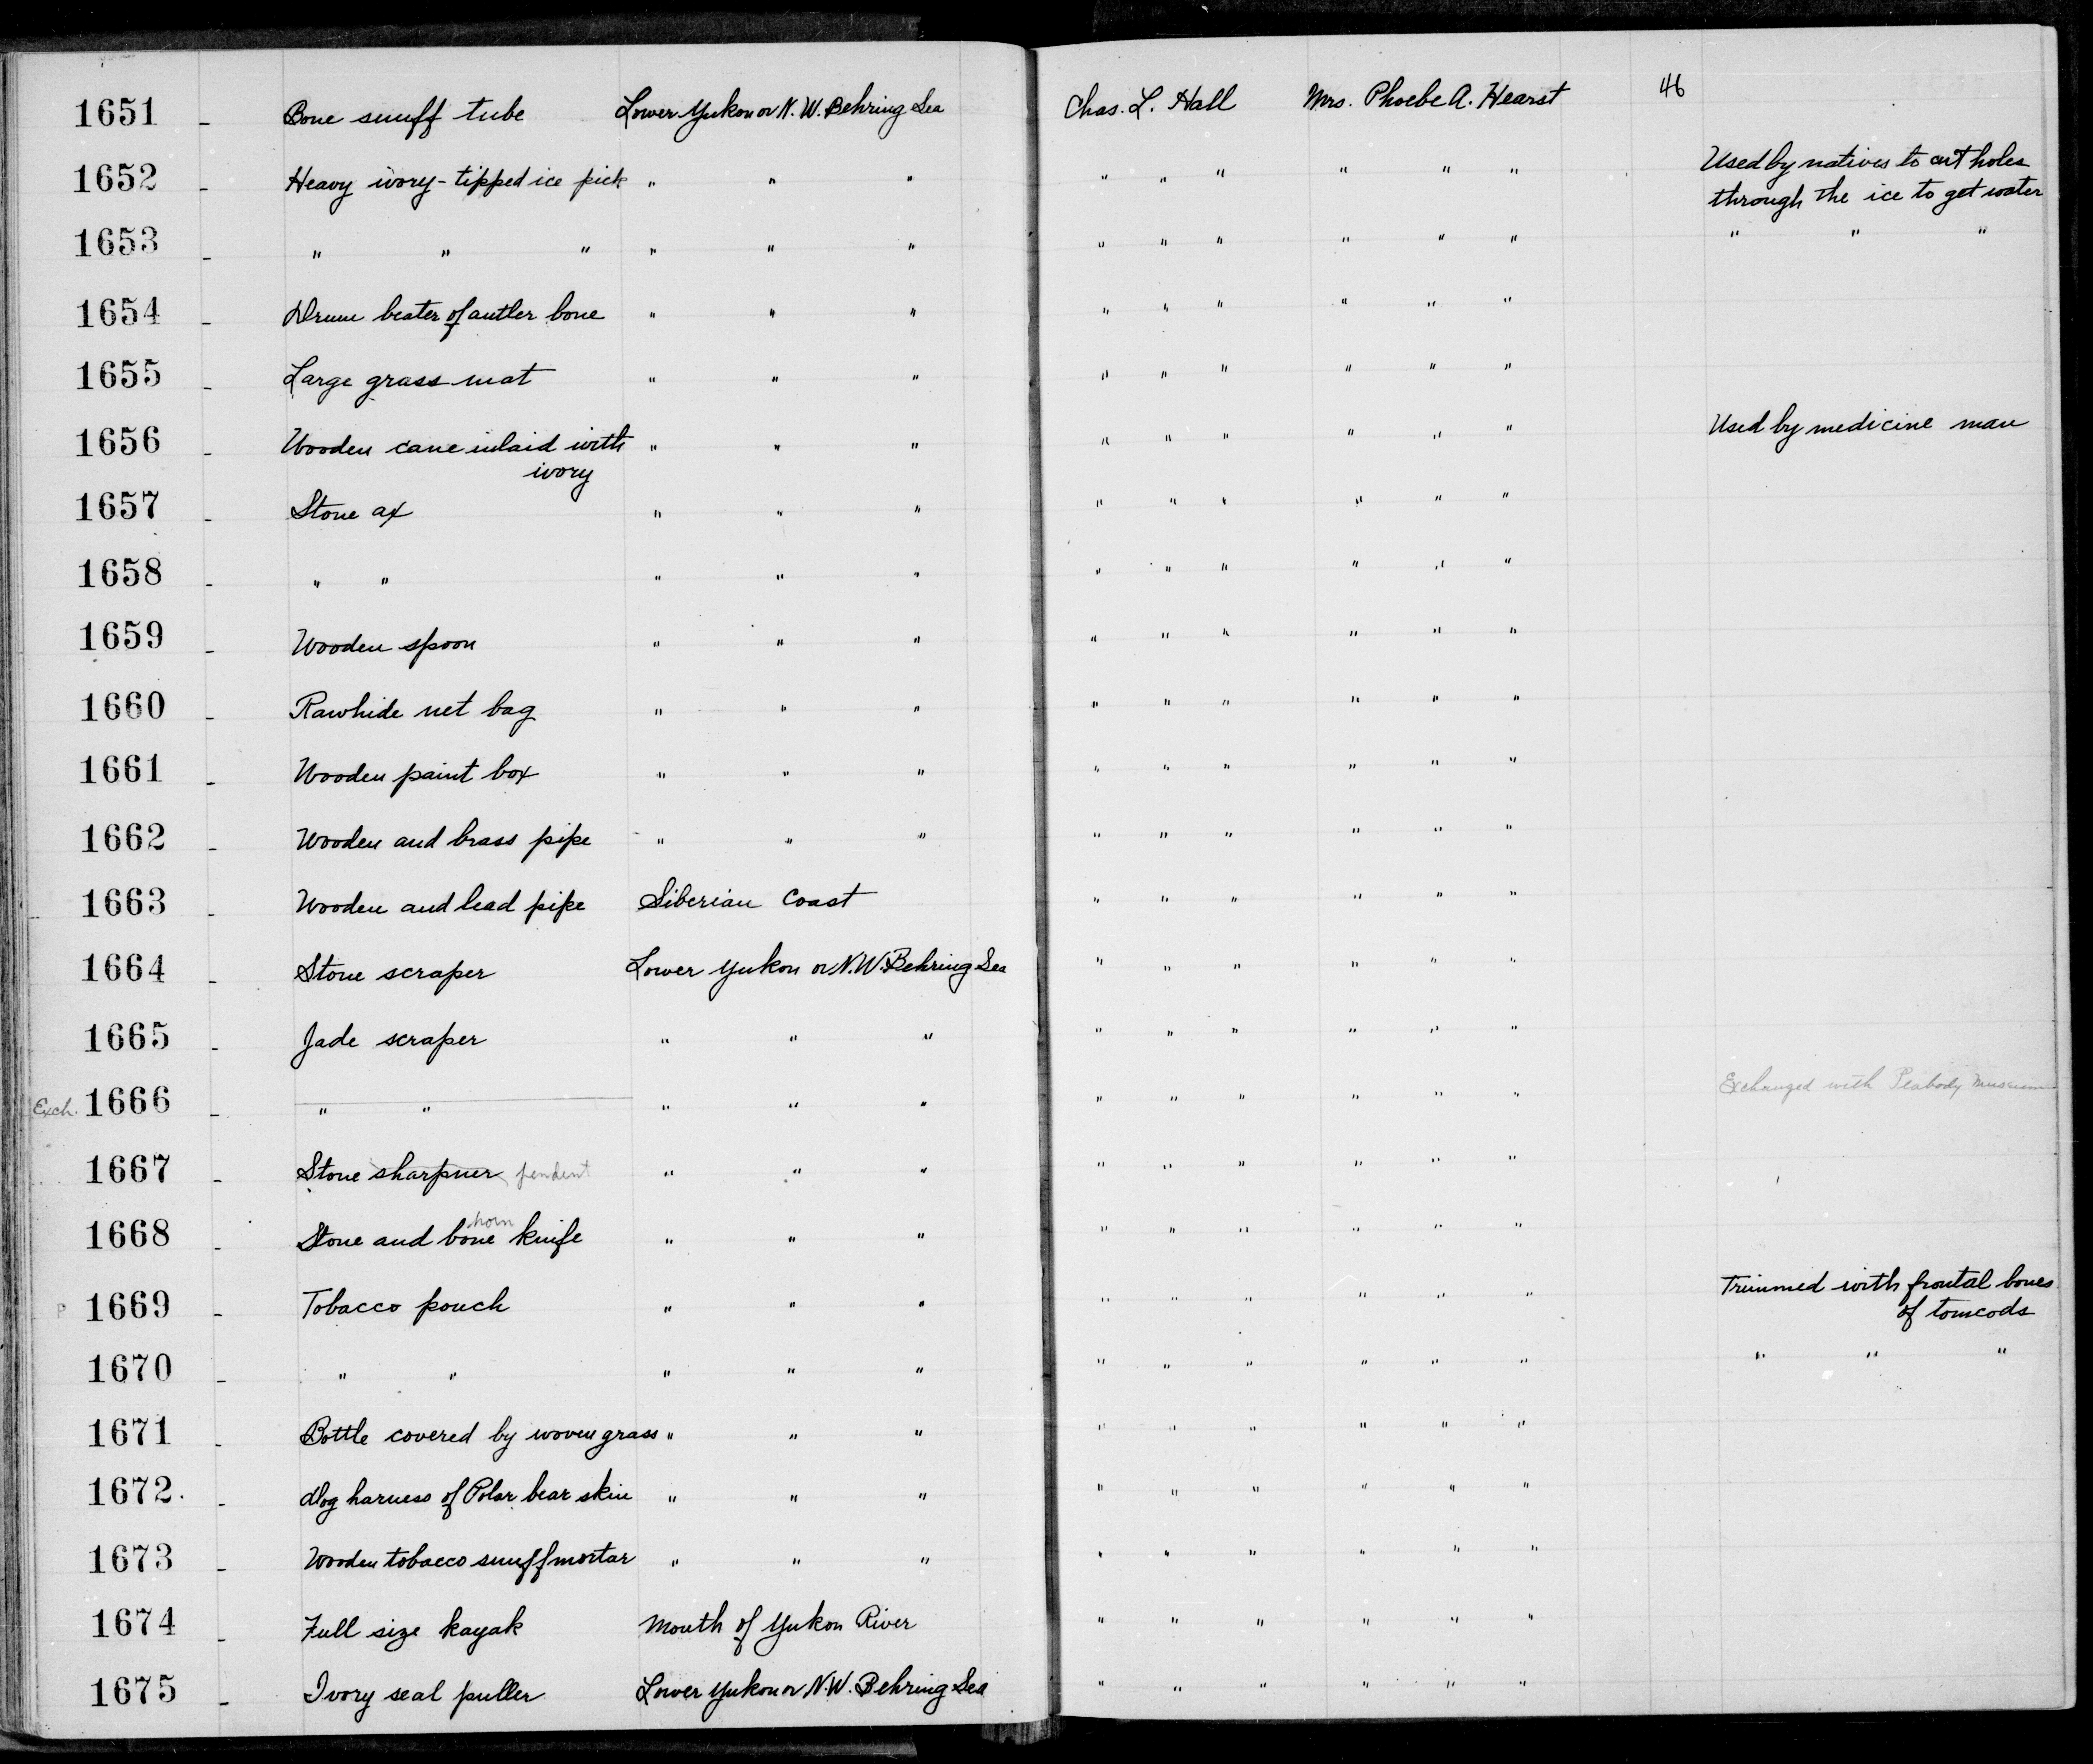 1651 - Bone snuff tube Lower Yukon or N. W. Behring Sea Chas. L. Hall Mrs. Phoebe A. Hearst 46
1652 - Heavy ivory-tipped ice pick " " " " " " " " " Used by natives to cut holes
through the ice to get water
1653 - " " " " " " " " " " " " " " "
1654 - Drum beater of antler bone " " " " " " " " "
1655 - Large grass mat " " " " " " " " "
1656 - Wooden cane inlaid with " " " " " " " " " Used by medicine man
ivory
1657 - Stone ax " " " " " " " " "
1658 - " " " " " " " " " " "
1659 - Wooden spoon " " " " " " " " "
1660 - Rawhide net bag " " " " " " " " "
1661 - Wooden paint box " " " " " " " " "
1662 - Wooden and brass pipe " " " " " " " " "
1663 - Wooden and lead pipe Siberian Coast " " " " " "
1664 - Stone scraper Lower Yukon or N.W. Behring Sea " " " " " "
1665 - Jade scraper " " " " " " " " "
Exch. 1666 - " " " " " " " " " " " Exchanged with Peabody Museum
1667 - Stone sharpner pendent " " " " " " " " "
horn
1668 - Stone and bone knife " " " " " " " " "
P 1669 - Tobacco pouch " " " " " " " " " Trimmed with frontal bones
of tomcods
1670 - " " " " " " " " " " " " " "
1671 - Bottle covered by woven grass " " " " " " " " "
1672. - Dog harness of Polar bear skin " " " " " " " " "
1673 - Wooden tobacco snuff mortar " " " " " " " " "
1674 - Full size kayak Mouth of Yukon River " " " " " "
1675 - Ivory seal puller Lower Yukon or N.W. Behring Sea " " " " " "